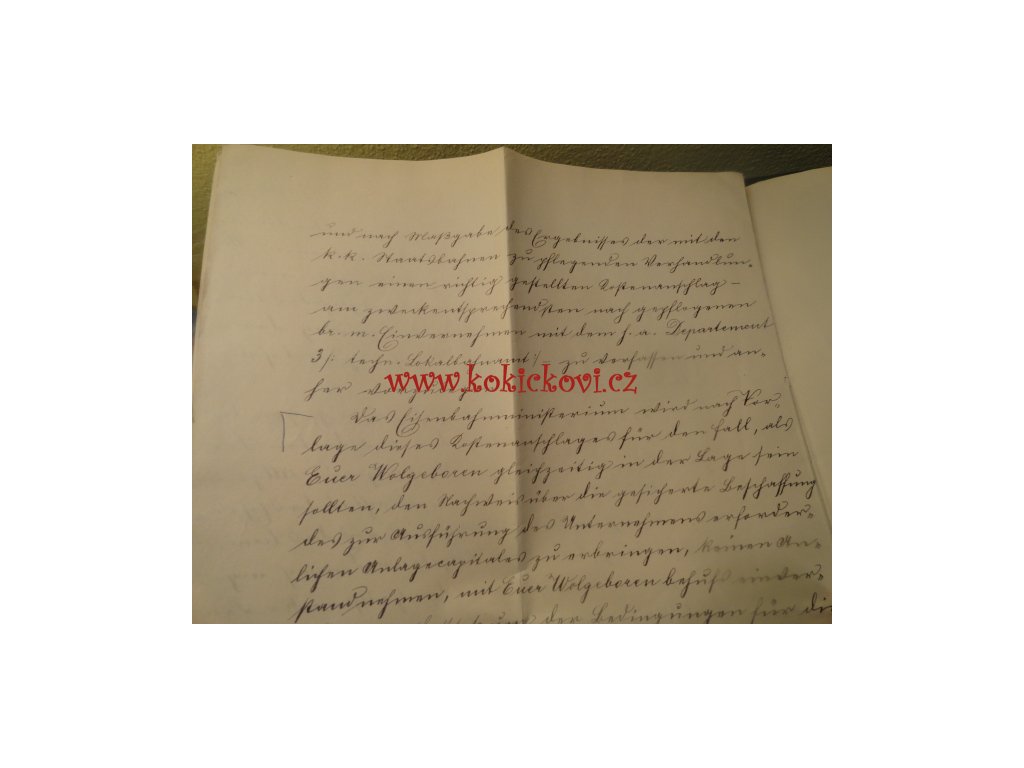 und nach Maßgabe des Ergebnisses der mit den
k.k. Staatsbahnen zu pflegenden Verhandlun-
gen einen richtig gestellten Kostenanschlag –
am zweckentsprechendsten nach gepflogenen
br. m. Einvernehmen mit dem h. a. Departement
3 /: techn. Lokalbahnamt :/ – zu verfassen und an-
her
www.kokickovi.cz
Das Eisenbahnministerium wird nach Vor-
lage dieses Kostenanschlages für den Fall, als
Euer Wolgeboren gleichzeitig in der Lage sein
sollten, den Nachweis über die gesicherte Beschaffung
des zur Ausführung des Unternehmens erforder-
lichen Anlagecapitales zu erbringen, keinen An-
stand nehmen, mit Euer Wolgeboren behufs einver-
der Bedingungen für di